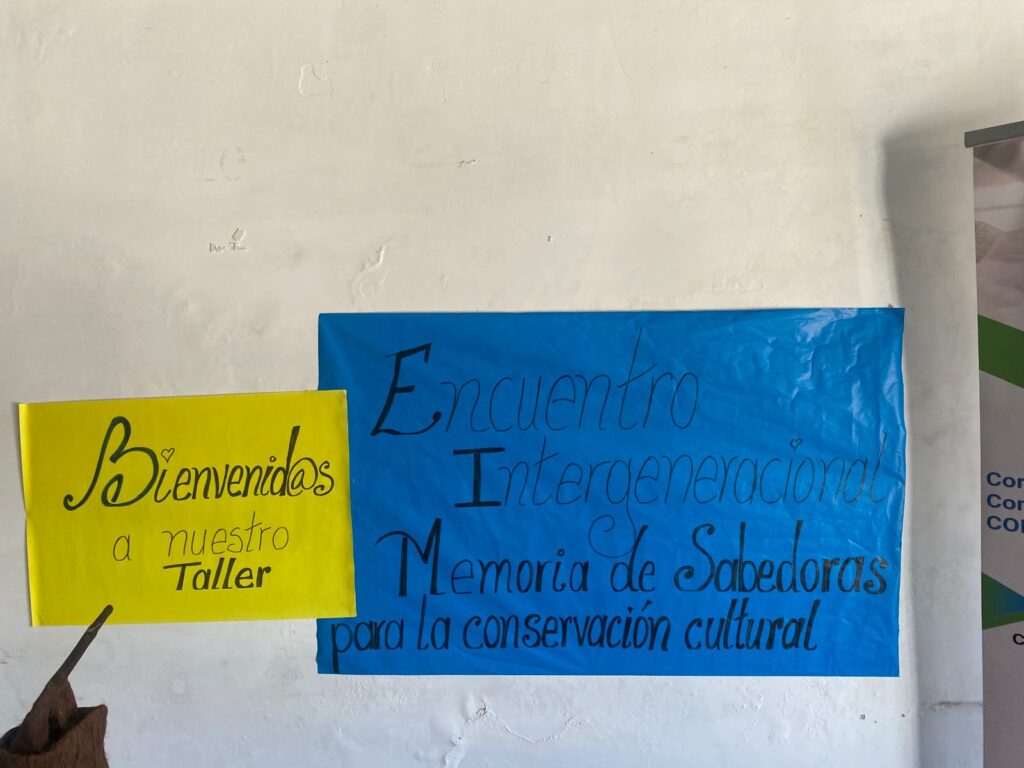 Bienvenid@s
a nuestro
Taller
Encuentro
Intergeneracional
Memoria de Sabedoras
para la conservación cultural